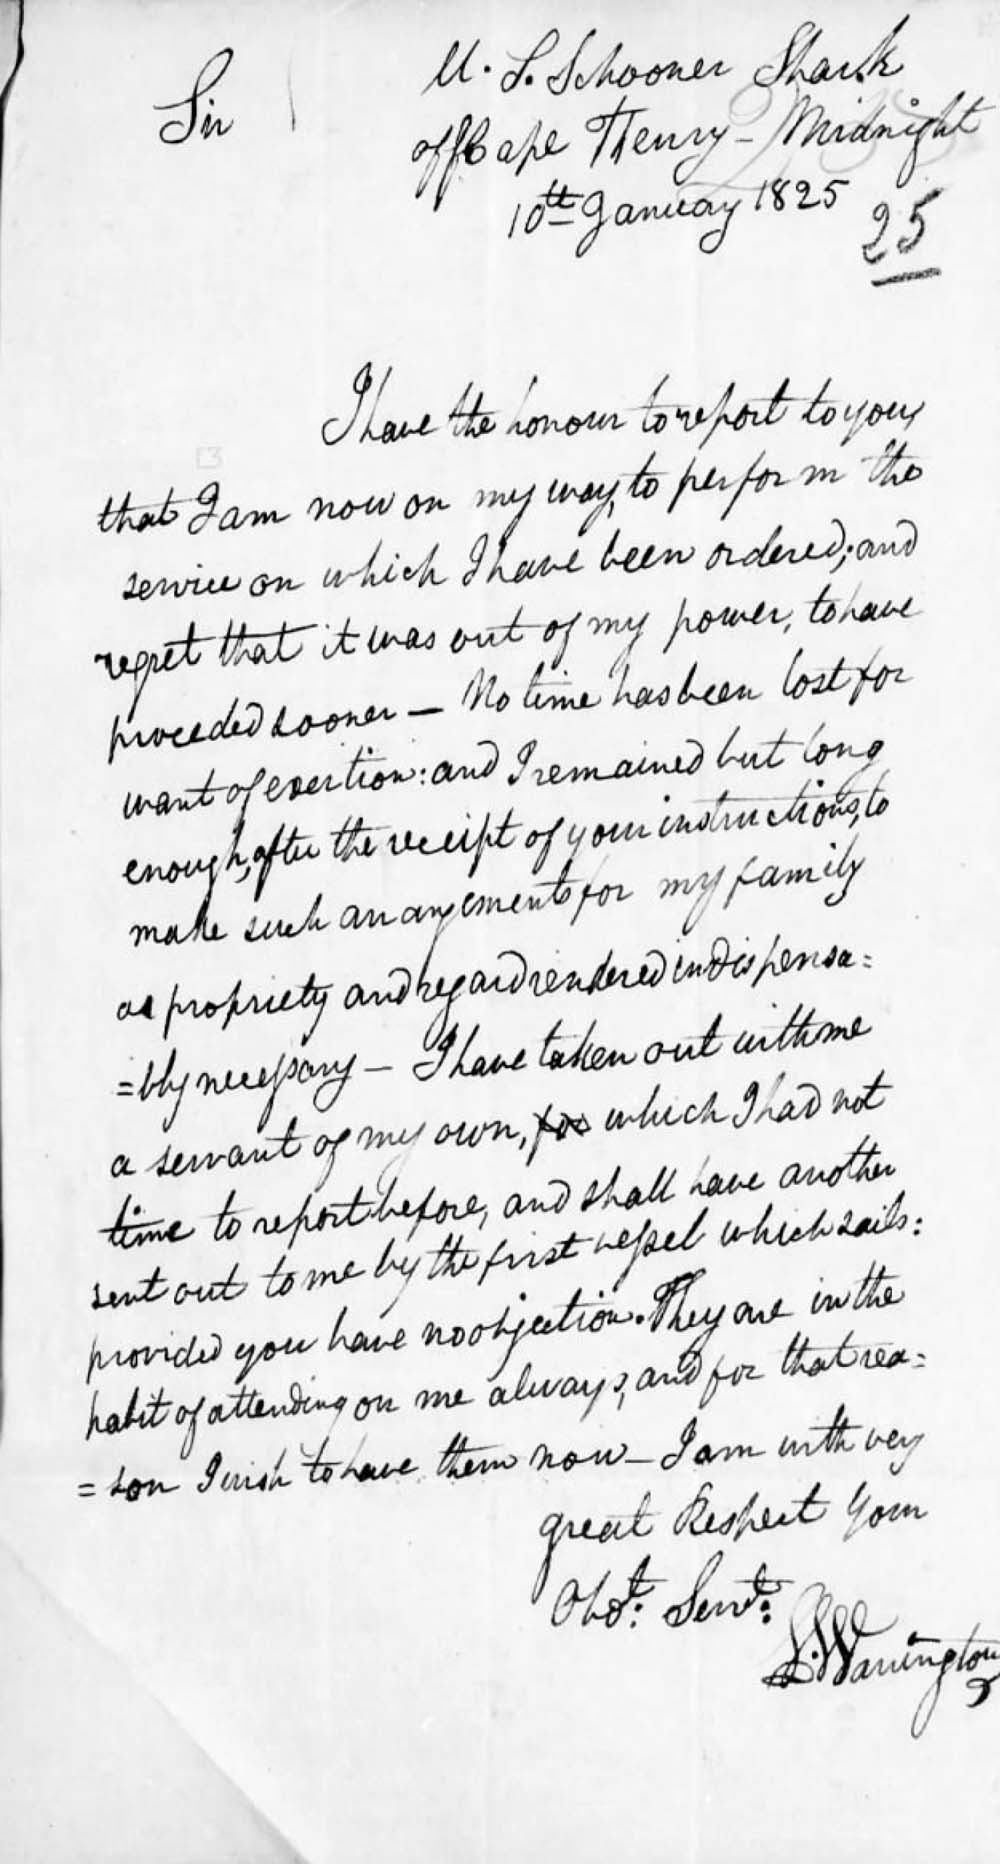 U. S. Schooner Shark
Sir
off Cape Henry - Midnight
10th January 1825
25
I have the honour to report to you,
that I am now on my way, to perform the
service on which I have been ordered; and
regret that it was out of my power, to have
proceeded sooner — No time has been lost for
want of exertion: and I remained but long
enough, after the receipt of your instructions, to
make such arrangements for my family
as propriety and regard rendered indispensa=
=bly necessary — I have taken out with me
a servant of my own, for which I had not
time to report before, and shall have another
sent out to me by the first vessel which sails:
provided you have no objection. They are in the
habit of attending on me always, and for that rea=
=son I wish to have them now — I am with very
great Respect Your
Obdt: Servt:
L. Warrington